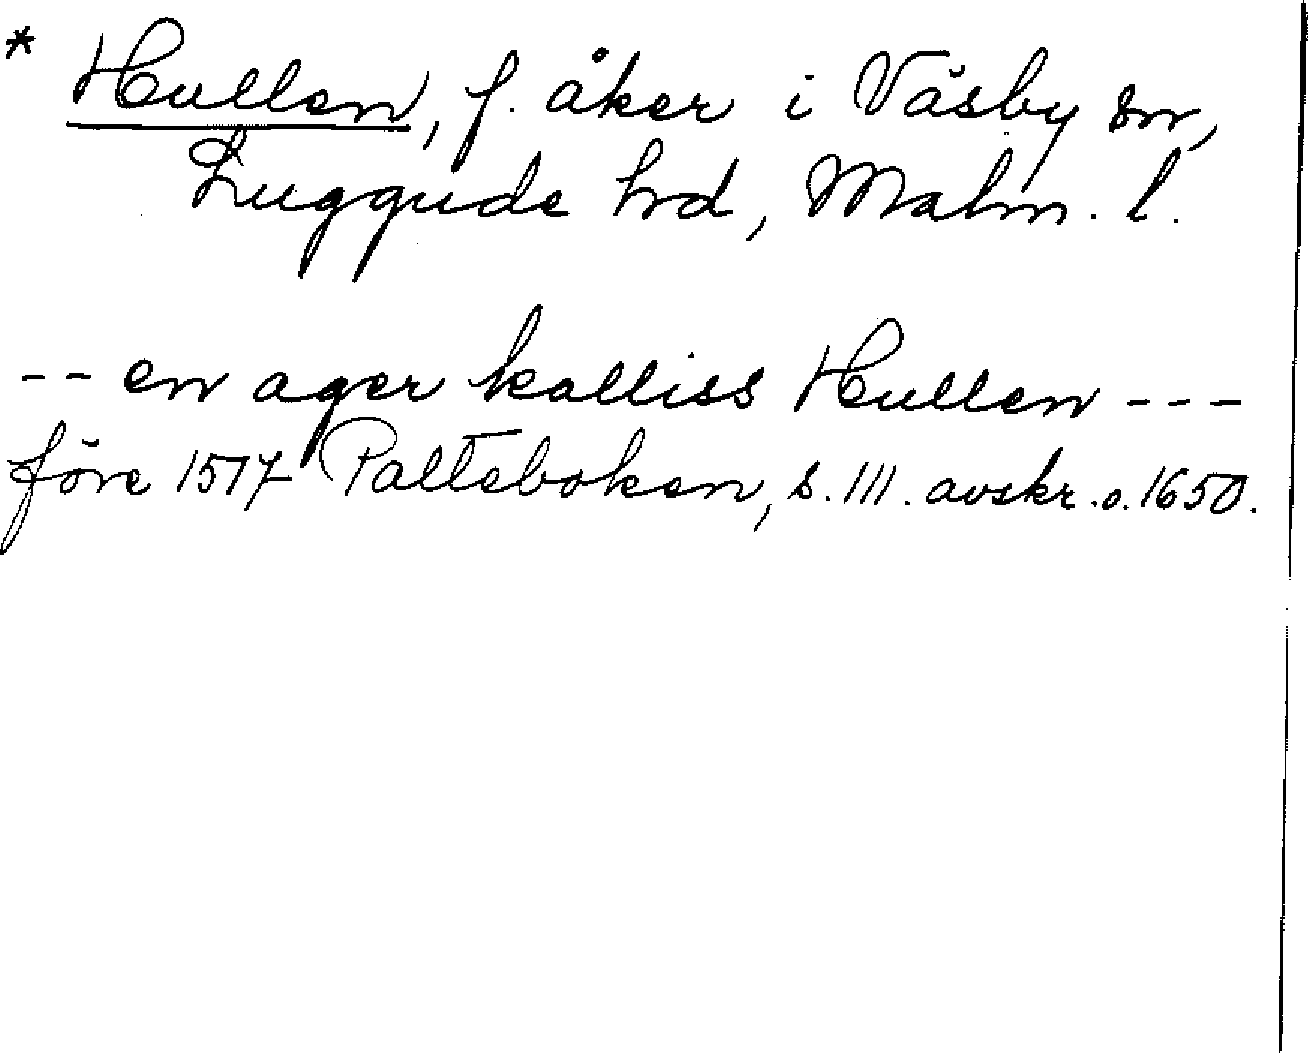 * Hullen, f. åker i Väsby sn,
Luggude hd, Malm. l.
-- en ager kalliss Hullen ---
före 1517 Palteboken, s. 111. avskr. o. 1650.